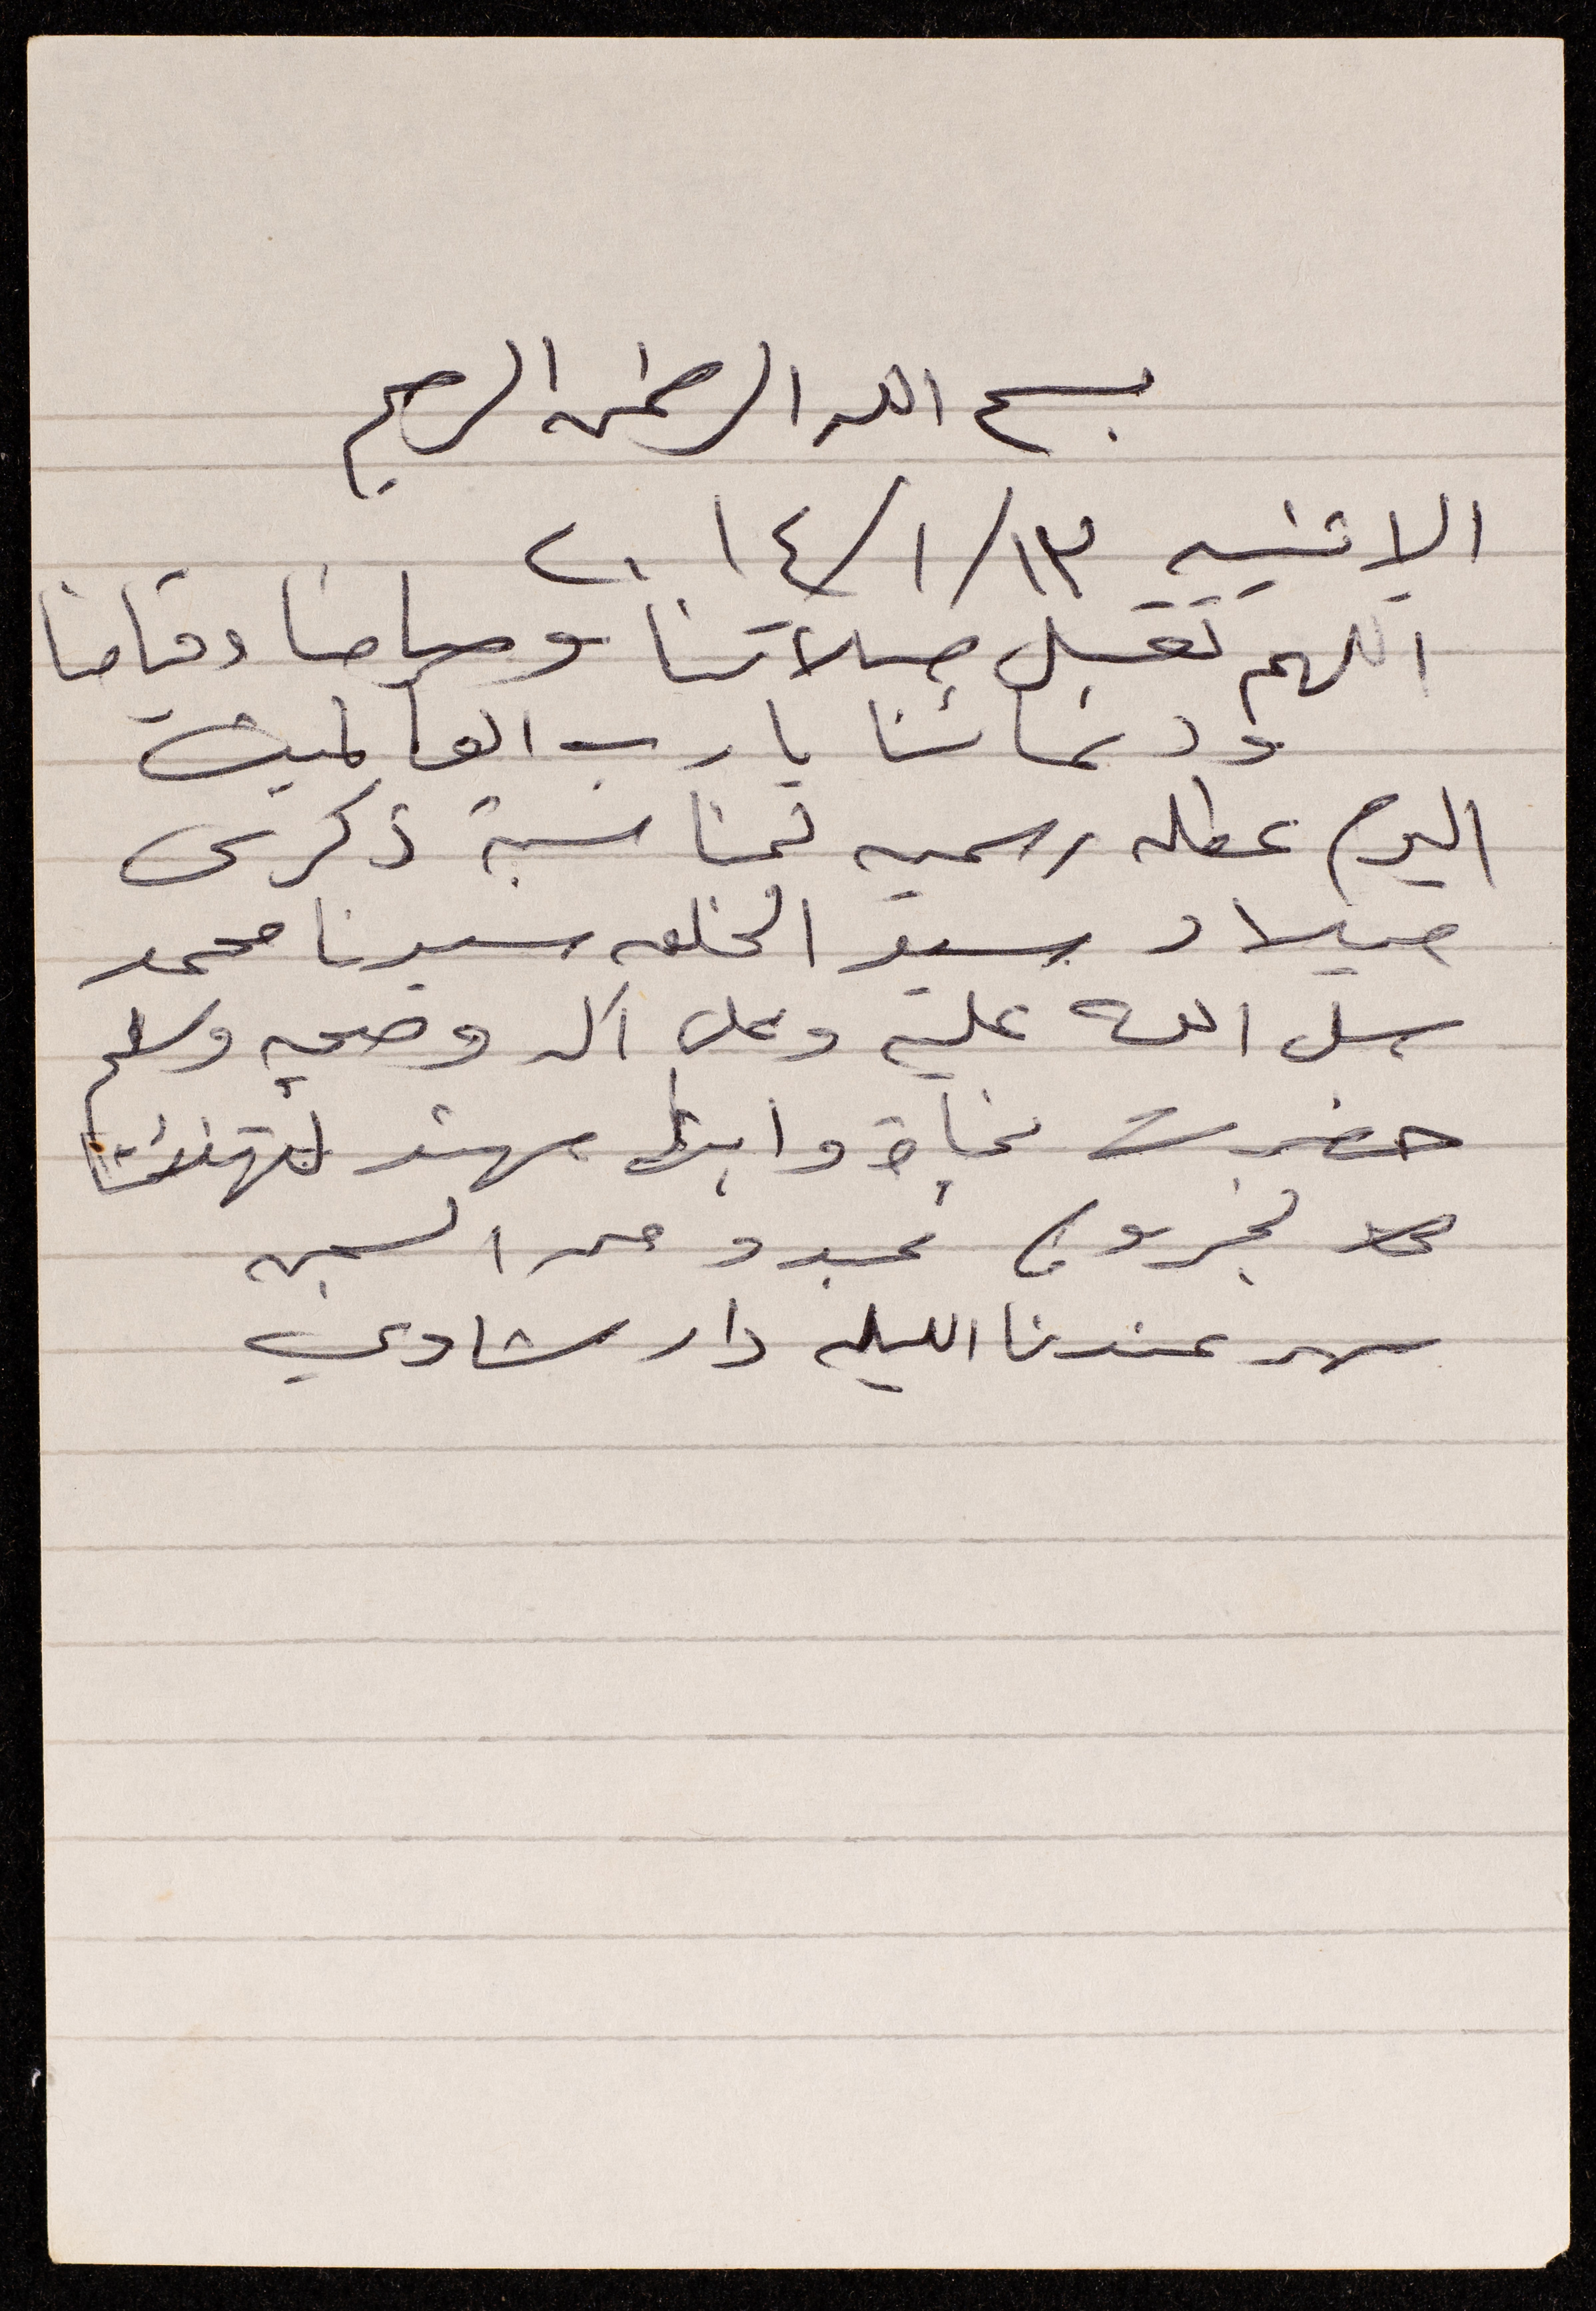 بسم الله الرحمن الرحيم
الاثنين ١٣/١/٢٠١٤
اللهم تقبل صلاتنا وصيامنا وقيامنا
ودعائنا يا رب العالمين
اليوم عطله رسميه بمناسبة ذكرى
ميلاد سيد الخلق سيدنا محمد
صل الله عليه وعلى آله وصحبه وسلم
حضرت نجاة وابنها مهند لتهنئتنا
بخروج عبود من السجن
سهر عندنا الليله دار شادي